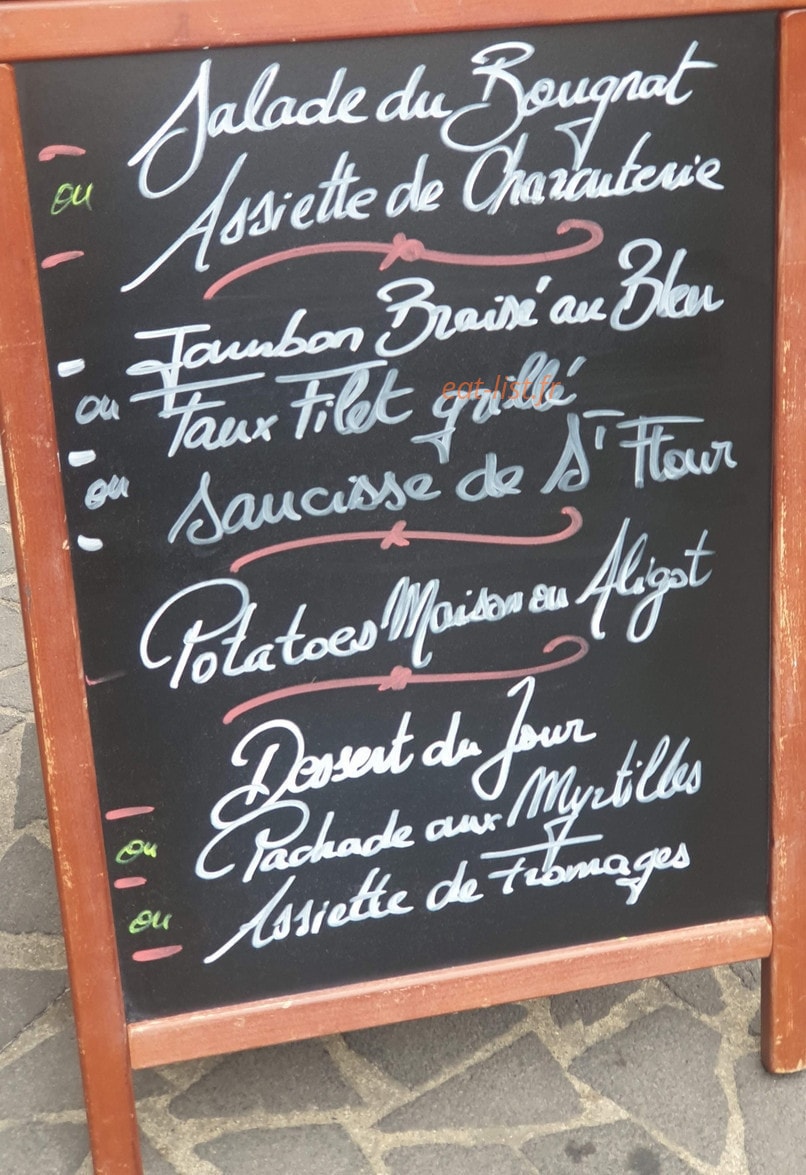 Salade du Bougnat
ou
Assiette de Charcuterie
Jambon Braisé au Bleu
ou
Faux Filet grillé
eat-list.fr
ou
Saucisse de St Flour
Potatoes Maison ou Aligot
Dessert du Jour
ou
Pachade aux Myrtilles
ou
Assiette de Fromages